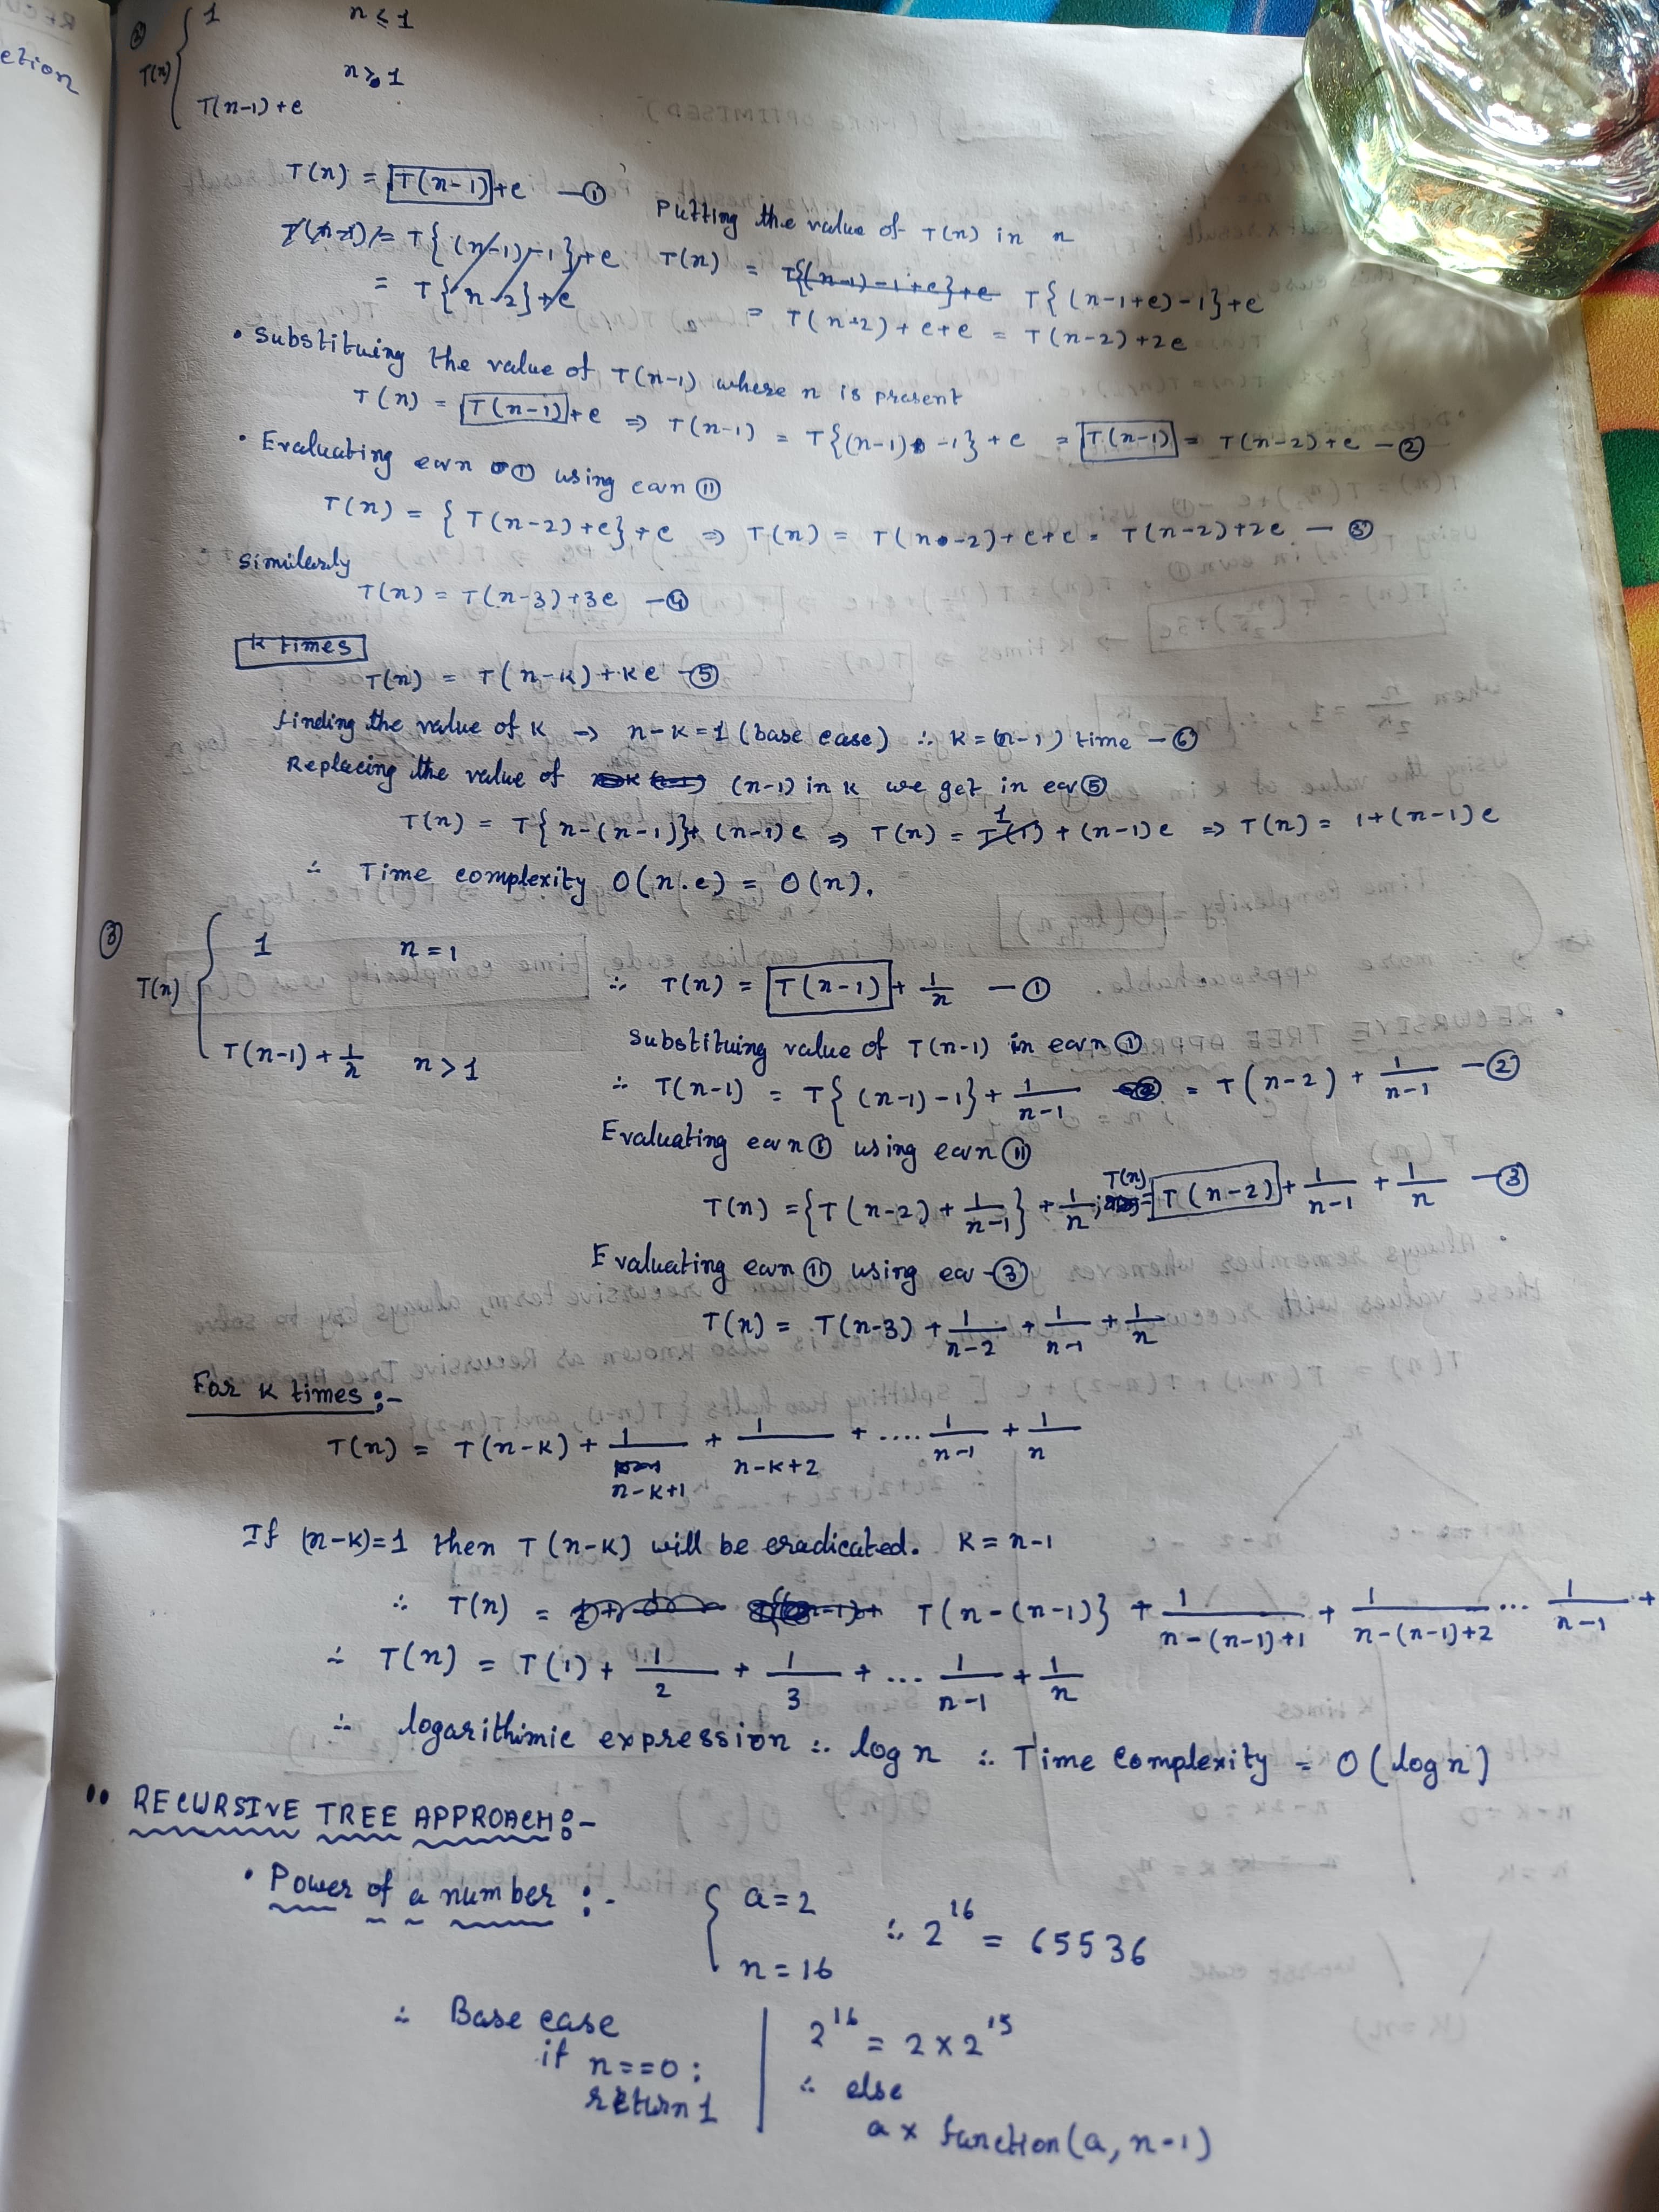 ②
T(n) { 1 n ≤ 1
T(n-1)+c n > 1
T(n) = T(n-1)+c —①
T(n-1) = T{(n-1)-1}+c
= T{n-2}+c
Putting the value of T(n) in n
T(n) = T{(n-1)-1+c}+c T{(n-1+c)-1}+c
= T(n-2)+c+c = T(n-2)+2c
• Substituing the value of T(n-1) where n is present
T(n) = T(n-1)+c ⇒ T(n-1) = T{(n-1)-1}+c = T(n-1) = T(n-2)+c —②
• Evaluating eqvn ① using eqvn ⑪
T(n) = {T(n-2)+c}+c ⇒ T(n) = T(n-2)+c+c = T(n-2)+2c —③
Similarly
T(n) = T(n-3)+3c —④
K times
T(n) = T(n-K)+Kc —⑤
finding the value of K → n-K=1 (base case) ∴ K=(n-1) time —⑥
Replacing the value of (n-1) in K we get in eqv⑤
T(n) = T{n-(n-1)}+(n-1)c ⇒ T(n) = T(1) 1 +(n-1)c ⇒ T(n) = 1+(n-1)c
∴ Time complexity O(n.c) = O(n).
③
T(n) { 1 n=1
T(n-1)+1/n n>1
∴ T(n) = T(n-1)+1/n —①
Substituing value of T(n-1) in eqvn ①
∴ T(n-1) = T{(n-1)-1}+1/n-1 = T(n-2)+1/n-1 —②
Evaluating eqvn ① using eqvn ⑪
T(n) = {T(n-2)+1/n-1}+1/n; T(n) = T(n-2)+1/n-1+1/n —③
Evaluating eqvn ⑪ using eqv-③
T(n) = T(n-3)+1/n-2+1/n-1+1/n
For K times :-
T(n) = T(n-K)+1/n-K+1+1/n-K+2+....1/n-1+1/n
If (n-K)=1 then T(n-K) will be eradicated. K=n-1
∴ T(n) = T(n-(n-1)}+1/n-(n-1)+1+1/n-(n-1)+2...1/n-1+
∴ T(n) = T(1)+1/2+1/3+...1/n-1+1/n
∴ logarithimic expression ∴ log n ∴ Time Complexity = O(log n)
•• RECURSIVE TREE APPROACH :-
• Power of a number :- { a=2
n=16
∴ 2^16 = 65536
∴ Base case
if n==0:
return 1
2^16 = 2×2^15
∴ else
a × function(a, n-1)